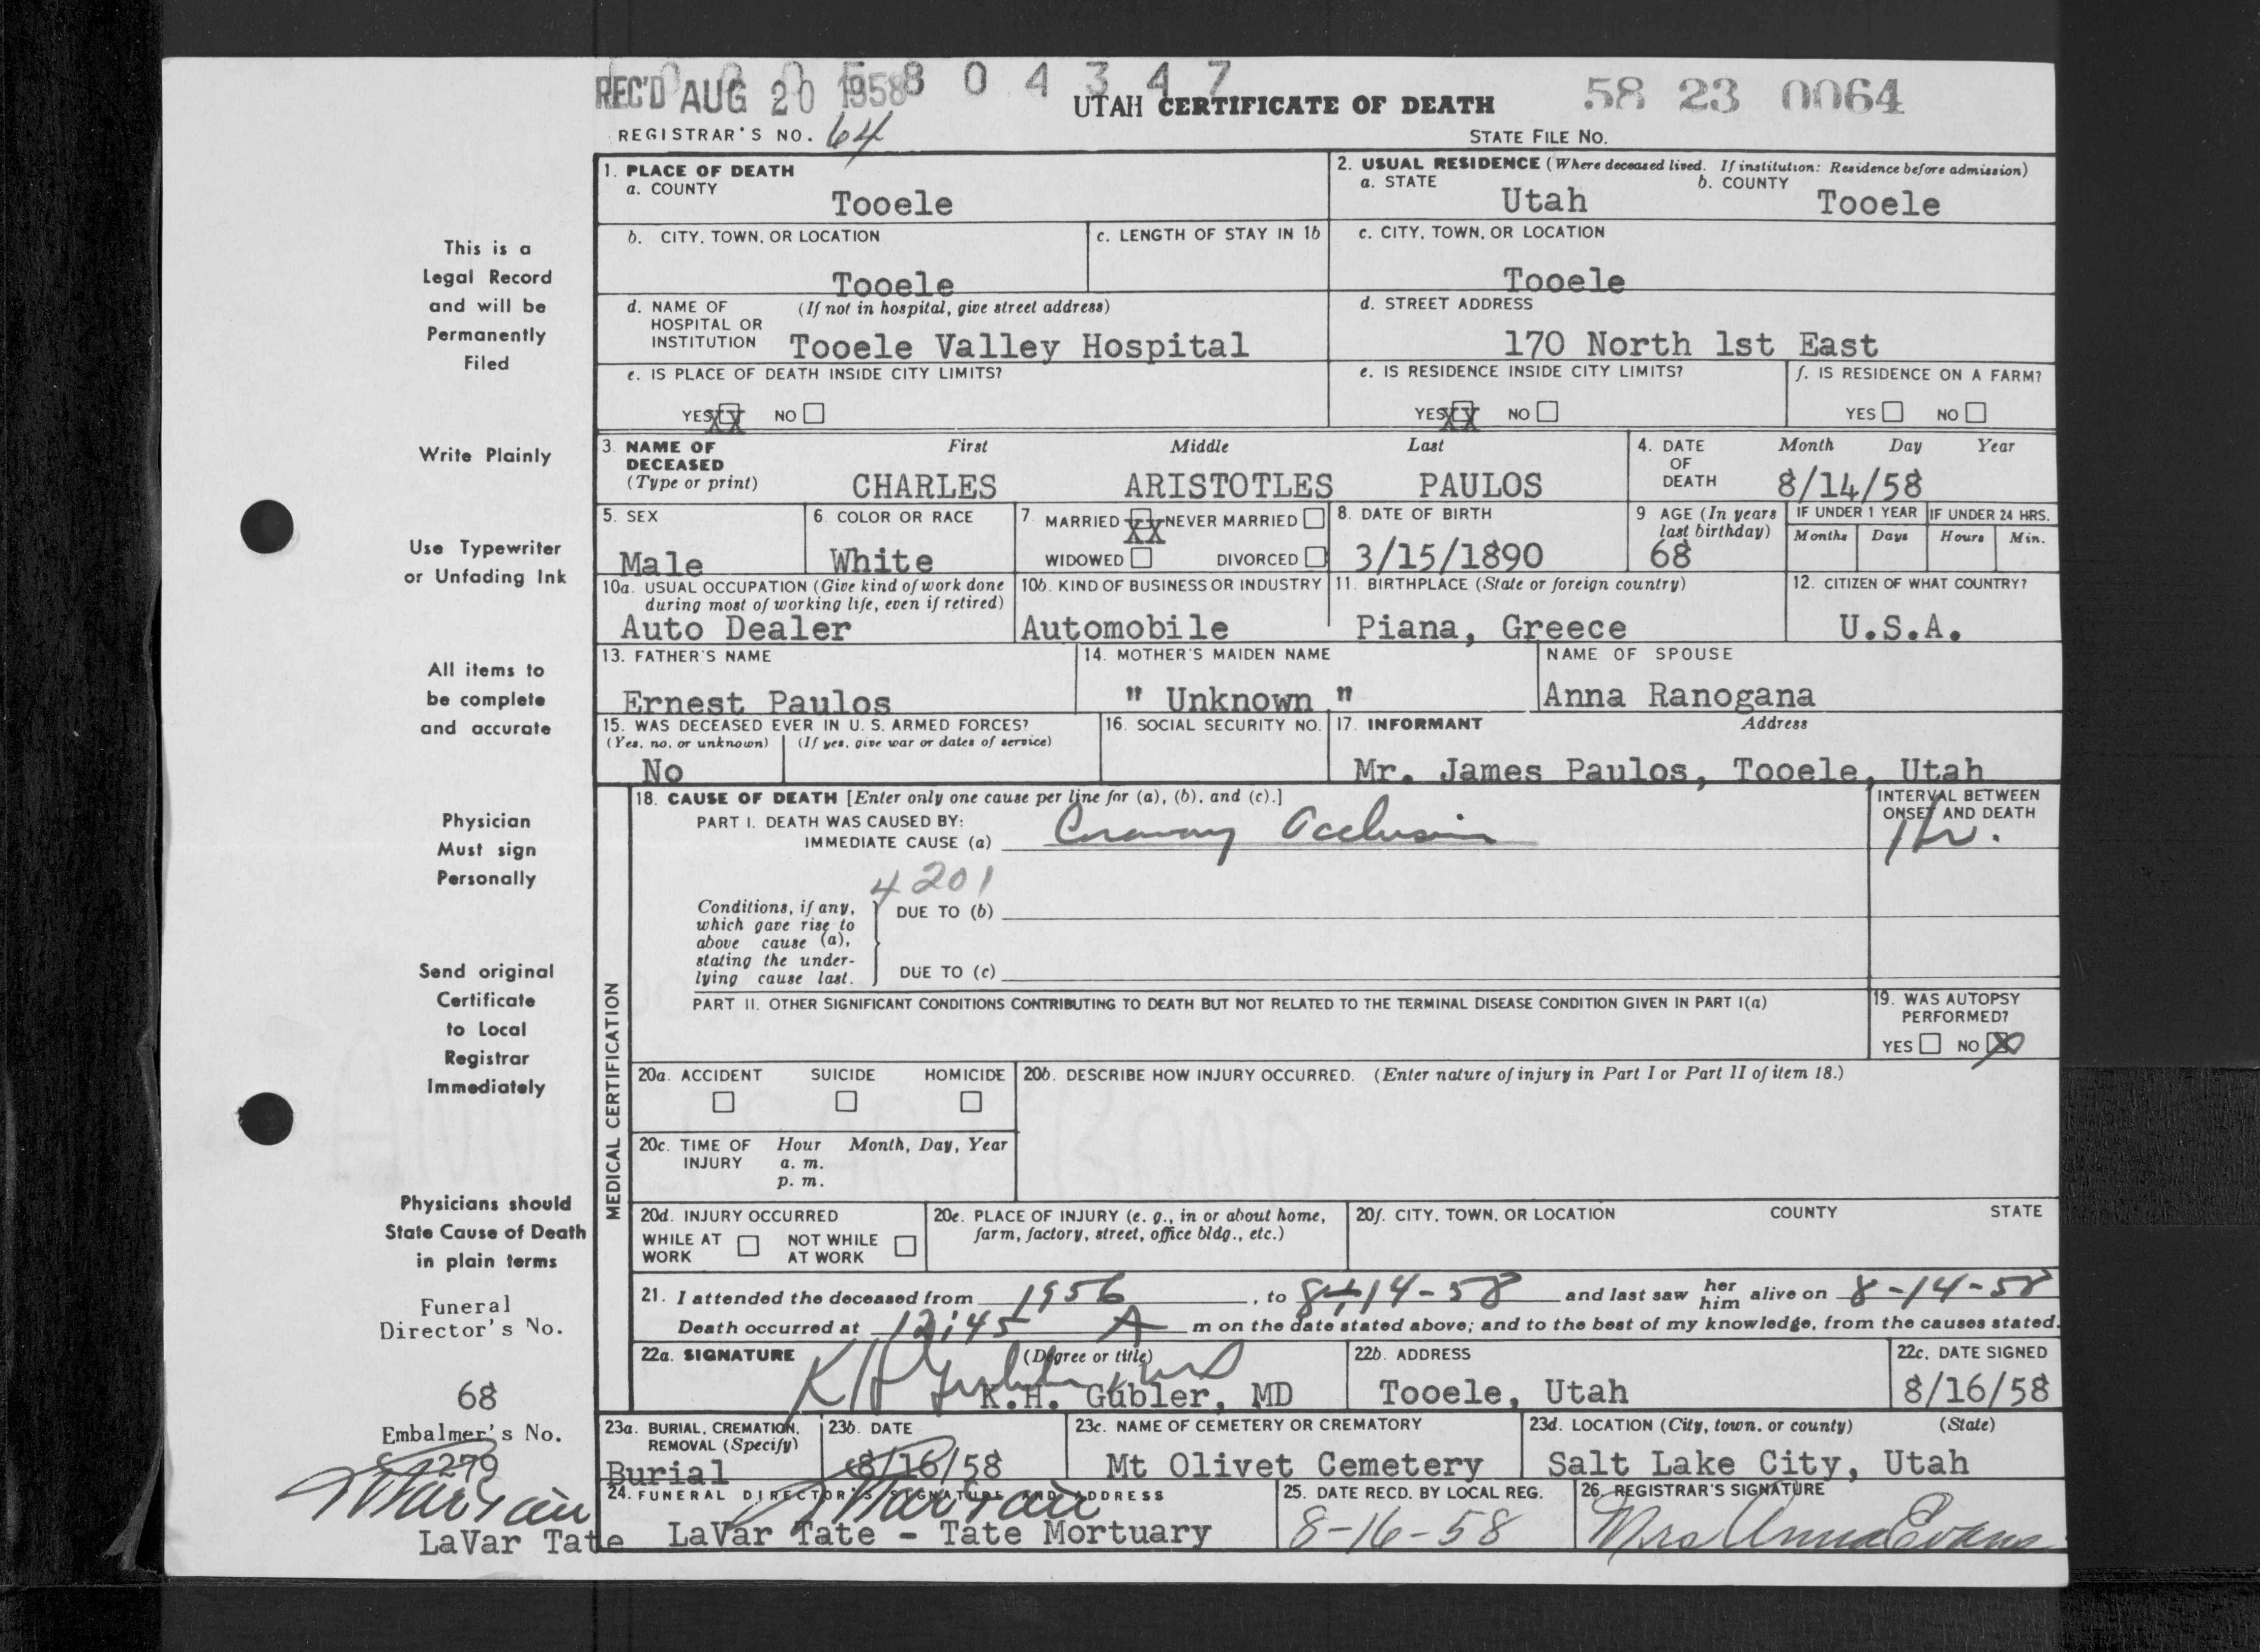 REC'D AUG 20 1958 8 0 4 3 4 7
UTAH CERTIFICATE OF DEATH
58 23 0064
REGISTRAR'S NO. 64
STATE FILE NO.
1. PLACE OF DEATH
a. COUNTY
Tooele
2. USUAL RESIDENCE (Where deceased lived. If institution: Residence before admission)
a. STATE b. COUNTY
Utah Tooele
b. CITY, TOWN, OR LOCATION
Tooele
c. LENGTH OF STAY IN 1b
c. CITY, TOWN, OR LOCATION
Tooele
d. NAME OF HOSPITAL OR INSTITUTION (If not in hospital, give street address)
Tooele Valley Hospital
d. STREET ADDRESS
170 North 1st East
e. IS PLACE OF DEATH INSIDE CITY LIMITS?
YES XX NO
e. IS RESIDENCE INSIDE CITY LIMITS?
YES XX NO
f. IS RESIDENCE ON A FARM?
YES NO
3. NAME OF DECEASED (Type or print)
First Middle Last
CHARLES ARISTOTLES PAULOS
4. DATE OF DEATH
Month Day Year
8/14/58
5. SEX
Male
6. COLOR OR RACE
White
7. MARRIED XX NEVER MARRIED
WIDOWED DIVORCED
8. DATE OF BIRTH
3/15/1890
9 AGE (In years last birthday)
68
IF UNDER 1 YEAR
Months Days
IF UNDER 24 HRS.
Hours Min.
10a. USUAL OCCUPATION (Give kind of work done during most of working life, even if retired)
Auto Dealer
10b. KIND OF BUSINESS OR INDUSTRY
Automobile
11. BIRTHPLACE (State or foreign country)
Piana, Greece
12. CITIZEN OF WHAT COUNTRY?
U.S.A.
13. FATHER'S NAME
Ernest Paulos
14. MOTHER'S MAIDEN NAME
" Unknown "
NAME OF SPOUSE
Anna Ranogana
15. WAS DECEASED EVER IN U. S. ARMED FORCES?
(Yes, no, or unknown) (If yes, give war or dates of service)
No
16. SOCIAL SECURITY NO.
17. INFORMANT Address
Mr. James Paulos, Tooele, Utah
MEDICAL CERTIFICATION
18. CAUSE OF DEATH [Enter only one cause per line for (a), (b), and (c).]
PART I. DEATH WAS CAUSED BY:
IMMEDIATE CAUSE (a) Coronary Occlusion
INTERVAL BETWEEN ONSET AND DEATH
1 hr.
4201
Conditions, if any, which gave rise to above cause (a), stating the underlying cause last.
DUE TO (b)
DUE TO (c)
PART II. OTHER SIGNIFICANT CONDITIONS CONTRIBUTING TO DEATH BUT NOT RELATED TO THE TERMINAL DISEASE CONDITION GIVEN IN PART I(a)
19. WAS AUTOPSY PERFORMED?
YES NO X
20a. ACCIDENT SUICIDE HOMICIDE
20b. DESCRIBE HOW INJURY OCCURRED. (Enter nature of injury in Part I or Part II of item 18.)
20c. TIME OF INJURY
Hour Month, Day, Year
a. m.
p. m.
20d. INJURY OCCURRED
WHILE AT WORK NOT WHILE AT WORK
20e. PLACE OF INJURY (e. g., in or about home, farm, factory, street, office bldg., etc.)
20f. CITY, TOWN, OR LOCATION COUNTY STATE
21. I attended the deceased from 1956, to 8-14-58 and last saw her him alive on 8-14-58
Death occurred at 12:45 A m on the date stated above; and to the best of my knowledge, from the causes stated.
22a. SIGNATURE (Degree or title)
KH Gubler MD
K.H. Gubler, MD
22b. ADDRESS
Tooele, Utah
22c. DATE SIGNED
8/16/58
23a. BURIAL, CREMATION, REMOVAL (Specify)
Burial
23b. DATE
8/16/58
23c. NAME OF CEMETERY OR CREMATORY
Mt Olivet Cemetery
23d. LOCATION (City, town, or county) (State)
Salt Lake City, Utah
24. FUNERAL DIRECTOR'S SIGNATURE AND ADDRESS
LaVar Tate
LaVar Tate - Tate Mortuary
25. DATE RECD. BY LOCAL REG.
8-16-58
26. REGISTRAR'S SIGNATURE
Mrs Anna Evans
This is a
Legal Record
and will be
Permanently
Filed
Write Plainly
Use Typewriter
or Unfading Ink
All items to
be complete
and accurate
Physician
Must sign
Personally
Send original
Certificate
to Local
Registrar
Immediately
Physicians should
State Cause of Death
in plain terms
Funeral
Director's No.
68
Embalmer's No.
279
LaVar Tate
LaVar Tate